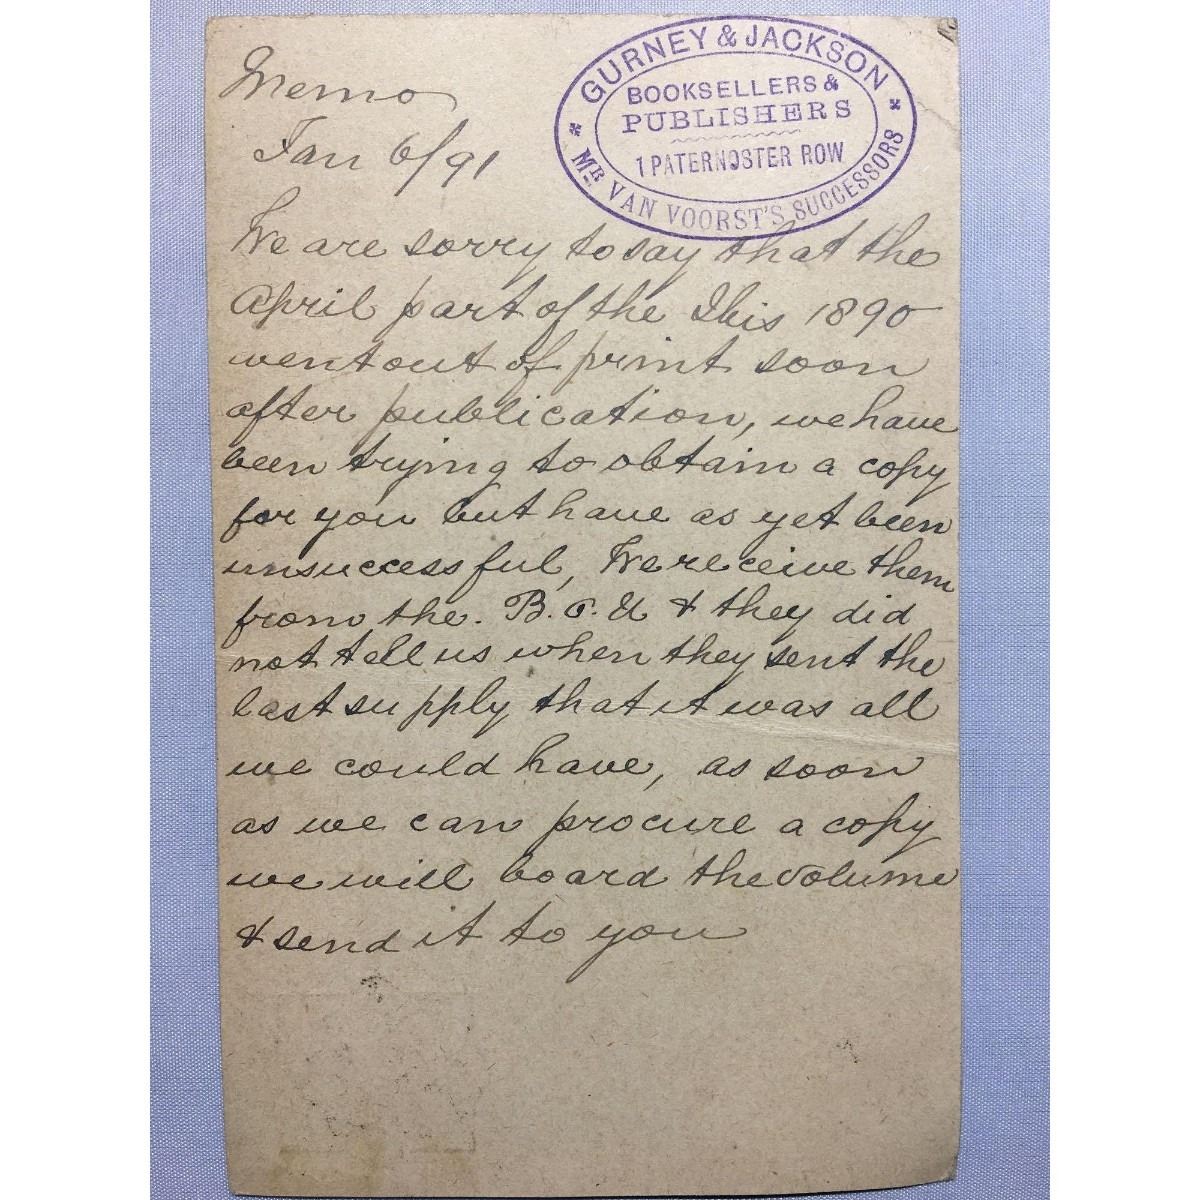 Memo
Jan 6/91
GURNEY & JACKSON
BOOKSELLERS &
PUBLISHERS
1 PATERNOSTER ROW
MR VAN VOORST'S SUCCESSORS
We are sorry to say that the
April part of the Ibis 1890
went out of print soon
after publication, we have
been trying to obtain a copy
for you but have as yet been
unsuccessful, We receive them
from the. B.O.U & they did
not tell us when they sent the
last supply that it was all
we could have, as soon
as we can procure a copy
we will board the volume
& send it to you